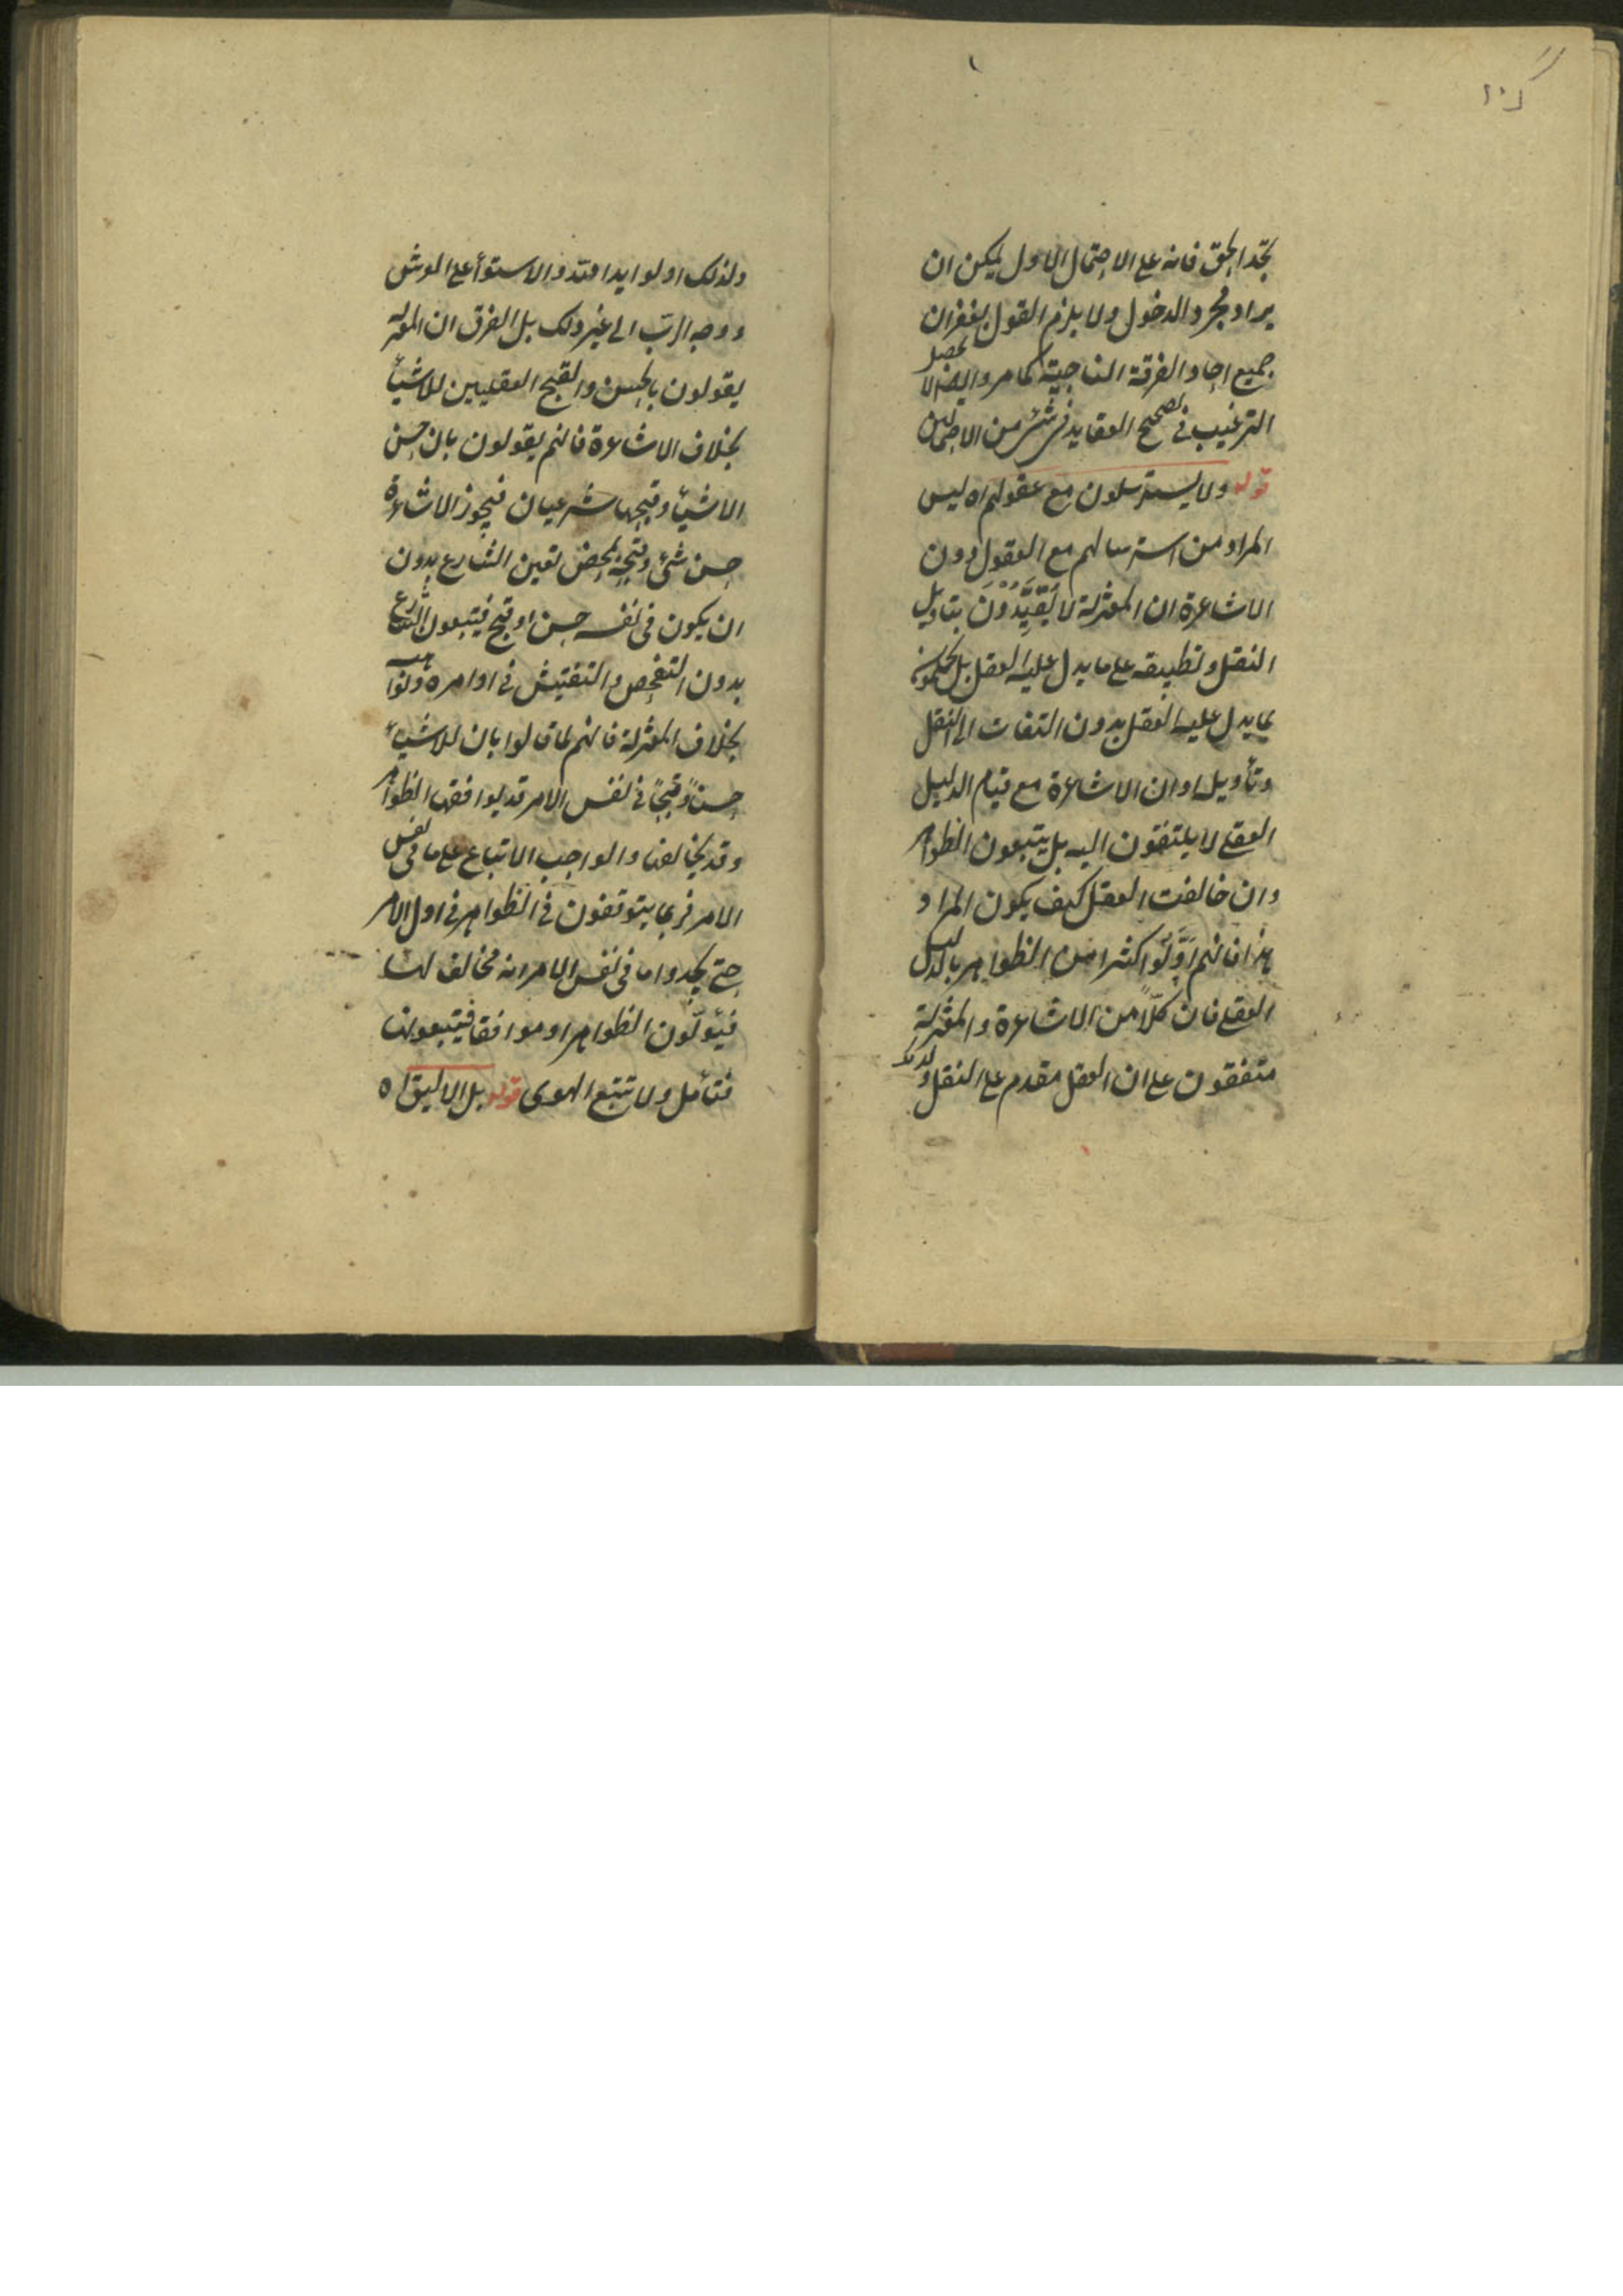 تجد الحق فانه على الاحتمال الاول يمكن ان
يراد مجرد الدخول ولا يلزم القول بغفران
جميع احاد الفرقة الناجية كما مر وايضا لا يحصل
الترغيب في تصحيح العقايد في شئ من الاحتمالين
قوله ولا يسترسلون مع عقولهم اه ليس
المراد من استرسالهم مع العقول دون
الاشاعرة ان المعتزلة لا يَتَقَيَّدُوْنَ بتاويل
النقل وتطبيقه على ما يدل عليه العقل بل يحكمون
بما يدل عليه العقل بدون التفات الى النقل
وتأويله او ان الاشاعرة مع قيام الدليل
العقلي لا يلتفتون اليه بل يتبعون الظواهر
وان خالفت العقل كيف يكون المراد
هذا فانهم اَوَّلُوا كثيرا من الظواهر بالدليل
العقلي فان كلّاً من الاشاعرة والمعتزلة
متفقون على ان العقل مقدم على النقل ولذلك
ولذلك اولوا يد الله والاستوأ على العرش
ووجه الرب الى غير ذلك بل الفرق ان المعتزلة
يقولون بالحسن والقبح العقليين للاشيأ
بخلاف الاشاعرة فانهم يقولون بان حسن
الاشيأ وقبحها شرعيان فيجوز الاشاعرة
حسن شئ وقبحه بمحض تعين الشارع بدون
ان يكون في نفسه حسن او قبح فيتبعون الشارع
بدون التفحص والتفتيش في اوامره ونواهيه
بخلاف المعتزلة فانهم لما قالوا بان للاشيأ
حسناً وقبحاً في نفس الامر قد يوافقها الظواهر
وقد يخالفها والواجب الاتباع على ما في نفس
الامر فربما يتوقفون في الظواهر في اول الامر
حتى يجدوا ما في نفس الامر انه مخالف لها
فيئولون الظواهر او موافقا فيتبعونها
فتأمل ولا تتبع الهوى قوله بل الاليق اه